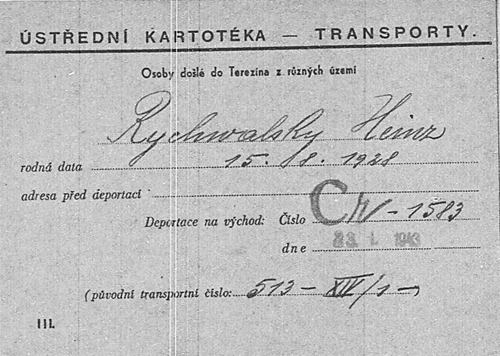 ÚSTŘEDNÍ KARTOTÉKA — TRANSPORTY.
Osoby došlé do Terezína z různých území
Rychwalsky Heinz
rodná data 15. 8. 1928
adresa před deportací
Deportace na východ: Číslo Cr - 1583
dne 23. I. 1943
(původní transportní číslo: 513 — XIV/1 —
III.